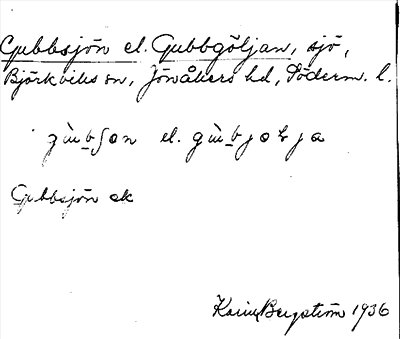 Gubbsjön el. Gubbgöljan, sjö,
Björkviks sn, Jönåkers hd, Söderm. l.
gùb̲ʃon el. gùb̲jolja
Gubbsjön ek
Karin Bergström 1936